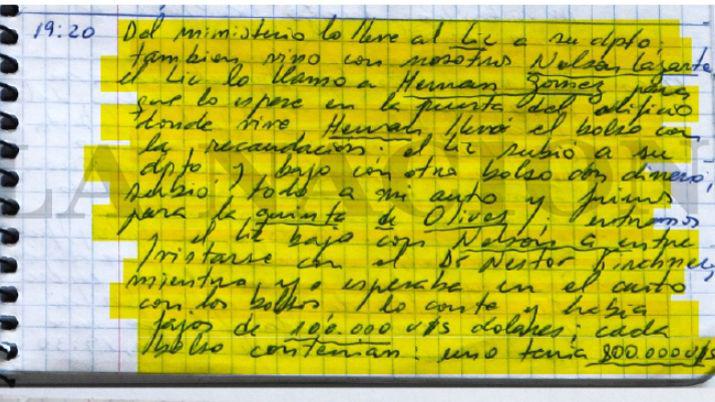 19:20 Del ministerio lo lleve al Lic a su dpto.
tambien vino con nosotros Nelson Lazarte,
el Lic lo llamo a Hernan Gomez para
que lo espere en la puerta del edificio
donde vive Hernan llevó el bolso con
la recaudacion, el Lic subio a su
dpto y bajo con otro bolso con dinero,
subió todo a mi auto y fuimos
para la quinta de Olivos; entramos
y el Lic bajo con Nelson a entre
vistarse con el Dr Nestor Kirchner,
mientras yo esperaba en el auto
con los bolsos, lo conte y habia
fajos de 100.000 u$s dolares; cada
bolso contenian: uno tenia 800.000 u$s
LA NACION